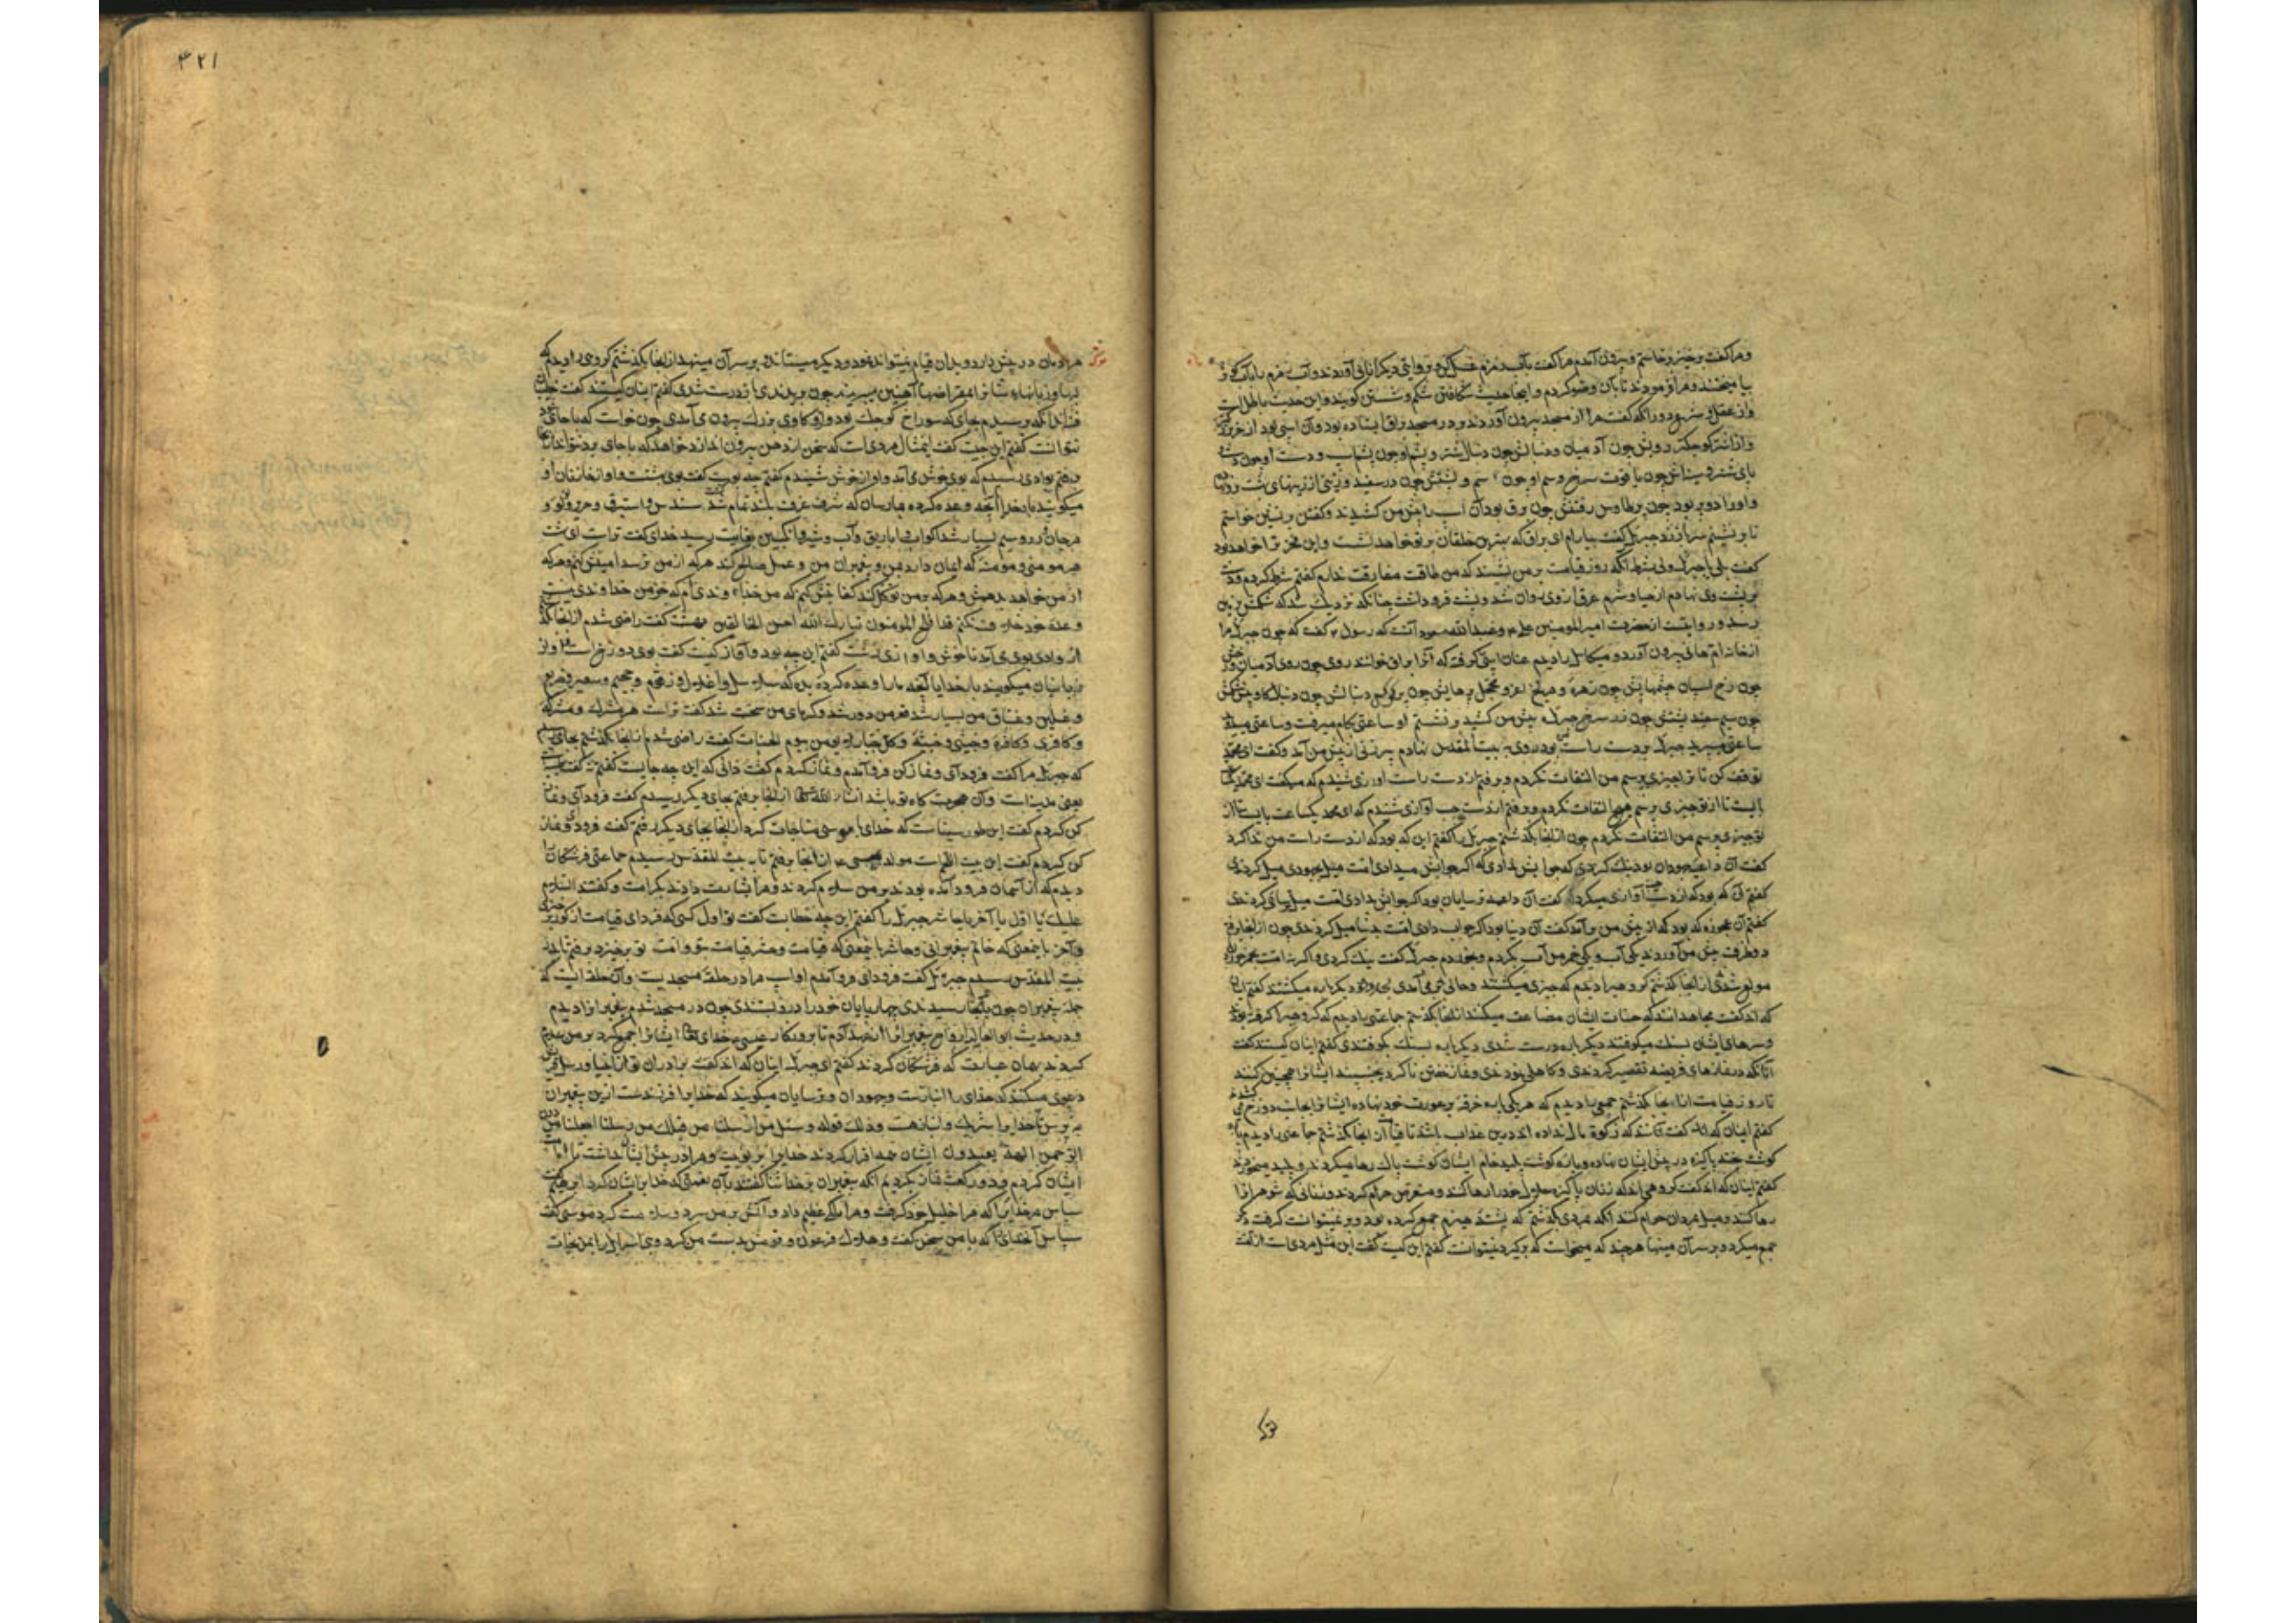 و مرا گفت برخیز برخاستم و بیرون آمدم مرا گفت بآب زمزم غسل کن و بروایتی دیگر اناثی آوردند و آب زمزم
و مرا فرمودند تا بآن وضو کردم و اینجا حدیث شکافتن شکم و شستن گویند و این حدیث باطل است
مرا از مسجد بیرون آوردند و بر در مسجد براق ایستاده بود و آن اسبی بود از خر بزرگتر
و از اشتر کوچکتر رویش چون آدمیان و دنبالش چون دنبال شتر و
پای شتر و سینه اش چون یاقوت سرخ و سم او چون سم و پشتش چون در سفید و زینی از زینهای بهشت
و او را دو پر بود چون پر طاوس رفتنش چون برق بود آن اسب را پیش من کشیدند و گفتند بر نشین خواستم
تا بر نشینم جبرئیل گفت بیارام ای براق که بهترین خلقان بر تو خواهد نشست و این فخر ترا خواهد بود
گفت بلی یا جبرئیل ولی بشرط آنکه روز قیامت بر من نشیند که من طاقت مفارقت ندارم گفتم شرط کردم و دست
بر پشت وی نهادم از حیا و شرم عرق از وی روان شد و پشت فرو داشت چنانکه نزدیک شد که شکمش بزمین
رسد و روایت از حضرت امیرالمومنین علی و عبدالله مسعود آنست که رسول گفت که چون جبرئیل مرا
از خانه ام هانی بیرون آورد و میکائیل را دیدم عنان اسبی گرفته که آنرا براق خوانند روی چون روی آدمیان
چون سیم سفید پشتش چون زر سرخ جبرئیل پیش من کشید بر نشستم او ساعتی بگام میرفت و ساعتی
ساعتی میپرید جبرئیل بر دست راست بود روی به بیت المقدس نهادم پیر زنی از پیش من آمد و گفت ای محمد
توقف کن تا ترا چیزی پرسم من التفات نکردم و برفتم از دست راست آوازی شنیدم که میگفت ای محمد
بایست تا از تو چیزی پرسم هیچ التفات نکردم و برفتم از دست چپ آوازی شنیدم که ای محمد یکساعت بایست تا از
تو چیزی پرسم من التفات نکردم چون از آنجا بگذشتم جبرئیل را گفتم این که بود که از دست راست من ندا کرد
گفت آن داعیه جهودان بود نیک کردی که جوابش ندادی که اگر جوابش میدادی امت میل بجهودی میکردندی
گفتم آن که بود که از دست چپ آوازی میکرد گفت آن داعیه ترسایان بود اگر جوابش دادی امت میل بترسائی کردندی
گفتم آن عجوزه که بود که از پیش من برآمد گفت آن دنیا بود اگر جواب دادی امتت بدنیا میل کردندی چون از آنجا برفتم
دو ظرف پیش من آوردند یکی آب و یکی خمر من آب بگرفتم و بخوردم جبرئیل گفت نیک کردی و اگر نه امتت بخمر خوردن
مولع شدی از آنجا گذشتم گروهی را دیدم که چیزی میکشتند و حالی بر می آمدی بدرودند دیگر باره میکشتند گفتم اینان
که اند گفت مجاهدانند که حسنات ایشان مضاعف میکنند از آنجا بگذشتم جماعتی را دیدم که
سرهای ایشان بسنگ میکوفتند دیگر باره درست شدی دیگر باره بسنگ بکوفتندی گفتم اینان کیستند گفت
آنانکه در نمازهای فریضه تقصیر کردندی و کاهلی نمودندی و نماز خفتن ناکرده بخسبند ایشانرا همچنین کنند
تا روز قیامت از آنجا بگذشتم جمعی را دیدم که هر یکی پاره خرقه بر عورت خود نهاده ایشانرا بجانب دوزخ می
گفتم اینان که اند گفت آنانند که زکوة مال نداده اند درین عذاب باشند تا قیامت از آنجا گذشتم جماعتی را دیدم
گوشت پخته پاکیزه در پیش ایشان نهاده و پاره گوشت پلید خام ایشان گوشت پاک رها میکردند و پلید میخوردند
گفتم اینان که اند گفت گروهی اند که زنان پاکیزه حلال خود را رها کنند و متعرض حرام گردند و زنانی که شوهرانرا
رها کنند و میل بمردان حرام کنند آنگه بمردی بگذشتم که پشته هیزم جمع کرده بود و بر نمیتوانست گرفت دگر
جمع میکرد و بر سر آن مینهاد هر چند که میخواست که برگیرد نمیتوانست گفتم این کیست گفت این مثل مردی است از امت
۴۲۱
مرادمان در پیش دارد و بدان قیام نمیتواند نمود و دیگر میستاند و بر سر آن مینهد از آنجا بگذشتم گروهی را دیدم که
لبها و زبانهای ایشانرا بمقراضهای آهنین میبریدند چون ببریدندی باز درست شدی گفتم اینان کیستند گفت خطیبان
آنگه برسیدم بجای که سوراخ کوچک بود و گاوی بزرگ بیرون می آمدی چون خواست که باجای خود رود
نتوانست گفتم این چیست گفت این مثال مردی است که سخن از دهن بیرون اندازد خواهد که باجای برد نتواند
برفتم بوادی رسیدم که بوی خوش می آمد و آواز خوش شنیدم گفتم چه بویست گفت بوی بهشت و آواز خازنان او
میگویند بار خدایا آنچه وعده کرده بما رسان که شرف غرف بلند تمام شد سندس و استبرق و حریر و لؤلؤ و
مرجان و زر و سیم بسیار شد اکواب و اباریق و آب و شیر و انگبین بغایت رسید خدای گفت تراست ای بهشت
هر مومنی و مومنه که ایمان دارد بمن و پیغمبران من و عمل صالح کند هر که از من ترسد ایمنش کنم و هر که
از من خواهد بدهمش و هر که بر من توکل کند کفایتش کنم که من خداوندی ام که جز من خداوندی نیست
وعده خود خلاف نکنم قد افلح المومنون تبارک الله احسن الخالقین بهشت گفت راضی شدم از آنجا
از وادی بوی می آمد ناخوش و آوازی زشت گفتم این چه بود و آواز کیست گفت بوی دوزخ است و آواز
زبانیان میگویند بار خدایا آنچه ما را وعده کرده بده که سلاسل و اغلال و زقوم و حمیم و سعیر و ضریع
و غسلین و غساق من بسیار شد قعر من دور شد و گرمای من سخت شد گفت تراست هر مشرک و مشرکه
و کافری و کافره و خبیثی و خبیثه و کل جبار لا یومن بیوم الحساب گفت راضی شدم از آنجا بگذشتم بجای رسیدم
که جبرئیل مرا گفت فرود آی و نماز کن فرو آمدم و نماز کردم گفت دانی که این چه جایست گفتم نه گفت
یعنی مدینه است و آن هجرت گاه تو باشد انشاء الله تعالی از آنجا برفتم بجای دیگر رسیدم گفت فرود آی و نماز
کن کردم گفت این طور سیناست که خدای با موسی مناجات کرد از آنجا بجای دیگر رفتم گفت فرود آی و نماز
کن کردم گفت این بیت اللحم است مولد عیسی از آنجا برفتم تا به بیت المقدس رسیدم جماعتی فرشتگان را
دیدم که از آسمان فرود آمده بودند بر من سلام کردند و مرا بشارت دادند بکرامت و گفتند السلام
علیک یا اول یا آخر یا حاشر جبرئیل را گفتم این چه خطابست گفت تو اول کسی که فردای قیامت از گور
و آخر بآن معنی که خاتم پیغمبرانی و حاشر بآن معنی که قیامت و حشر قیامت بتو و امت تو برخیزد برفتم تا بدر
بیت المقدس رسیدم جبرئیل گفت فرود آی فرو آمدم او اسب مرا در حلقه مسجد بست و آن حلقه ایست که
جمله پیغمبران چون بآنجا رسیدندی چهارپایان خود را درو بستندی چون در مسجد شدم پیغمبرانرا دیدم
و در حدیث ابوالعالیه ارواح پیغمبرانرا از عهد آدم تا بروزگار عیسی خدای تعالی ایشانرا جمع کرد بر من سلام
کردند بهمان عبارت که فرشتگان کردند گفتم ای جبرئیل اینان که اند گفت برادران تو از انبیا و رسل
دعوی میکنند که خدای را انبازست و جهودان و ترسایان میگویند که خدایرا فرزندست ازین پیغمبران
بپرس تا خدایرا شریک و انباز هست و ذلک قوله و سئل من ارسلنا من قبلک من رسلنا اجعلنا من دون
الرحمن الهة یعبدون ایشان همه اقرار کردند خدایرا بربوبیت و مرا در پیش ایشان داشت تا امامت
ایشان کردم و دو رکعت نماز بکردیم آنگه پیغمبران بر خدا ثنا گفتند بآن نعمتی که خدا بر ایشان کرد ابراهیم گفت
سپاس مر خدایرا که مرا خلیل خود گرفت و مرا ملک عظیم داد و آتش بر من سرد و سلامت کرد موسی گفت
سپاس آن خدایرا که با من سخن گفت و هلاک فرعون و قومش بدست من کرد و بنی اسرائیل را بمن نجات